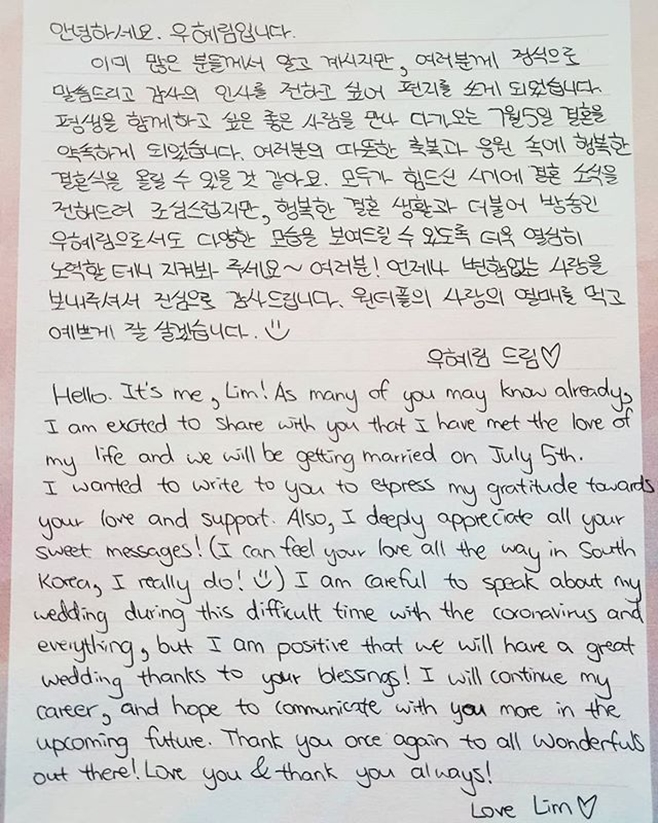 안녕하세요. 우혜림입니다.
이미 많은 분들께서 알고 계시지만, 여러분께 정식으로
말씀드리고 감사의 인사를 전하고 싶어 편지를 쓰게 되었습니다.
평생을 함께하고 싶은 좋은 사람을 만나 다가오는 7월5일 결혼을
약속하게 되었습니다. 여러분의 따뜻한 축복과 응원 속에 행복한
결혼식을 올릴 수 있을 것 같아요. 모두가 힘드신 시기에 결혼 소식을
전해드려 조심스럽지만, 행복한 결혼 생활과 더불어 방송인
우혜림으로서도 다양한 모습을 보여드릴 수 있도록 더욱 열심히
노력할 테니 지켜봐 주세요~ 여러분! 언제나 변함없는 사랑을
보내주셔서 진심으로 감사드립니다. 원더풀의 사랑의 열매를 먹고
예쁘게 잘 살겠습니다. ☺
우혜림 드림♡
Hello. It's me, Lim! As many of you may know already,
I am excited to share with you that I have met the love of
my life and we will be getting married on July 5th.
I wanted to write to you to express my gratitude towards
your love and support. Also, I deeply appreciate all your
sweet messages! (I can feel your love all the way in South
Korea, I really do! ☺) I am careful to speak about my
wedding during this difficult time with the coronavirus and
everything, but I am positive that we will have a great
wedding thanks to your blessings! I will continue my
career, and hope to communicate with you more in the
upcoming future. Thank you once again to all Wonderfuls
out there! Love you & thank you always!
Love Lim♡